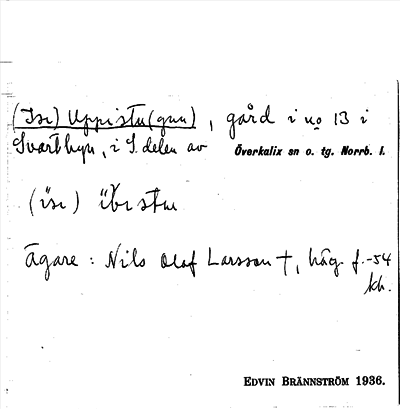 (Isi) Uppistu(gun), gård i no 13 i
Svartbyn, i S. delen av Överkalix sn o. tg. Norrb. l.
(isi) ùbistu
Ägare: Nils Olof Larsson †, häg. f. -54
kh.
EDVIN BRÄNNSTRÖM 1936.